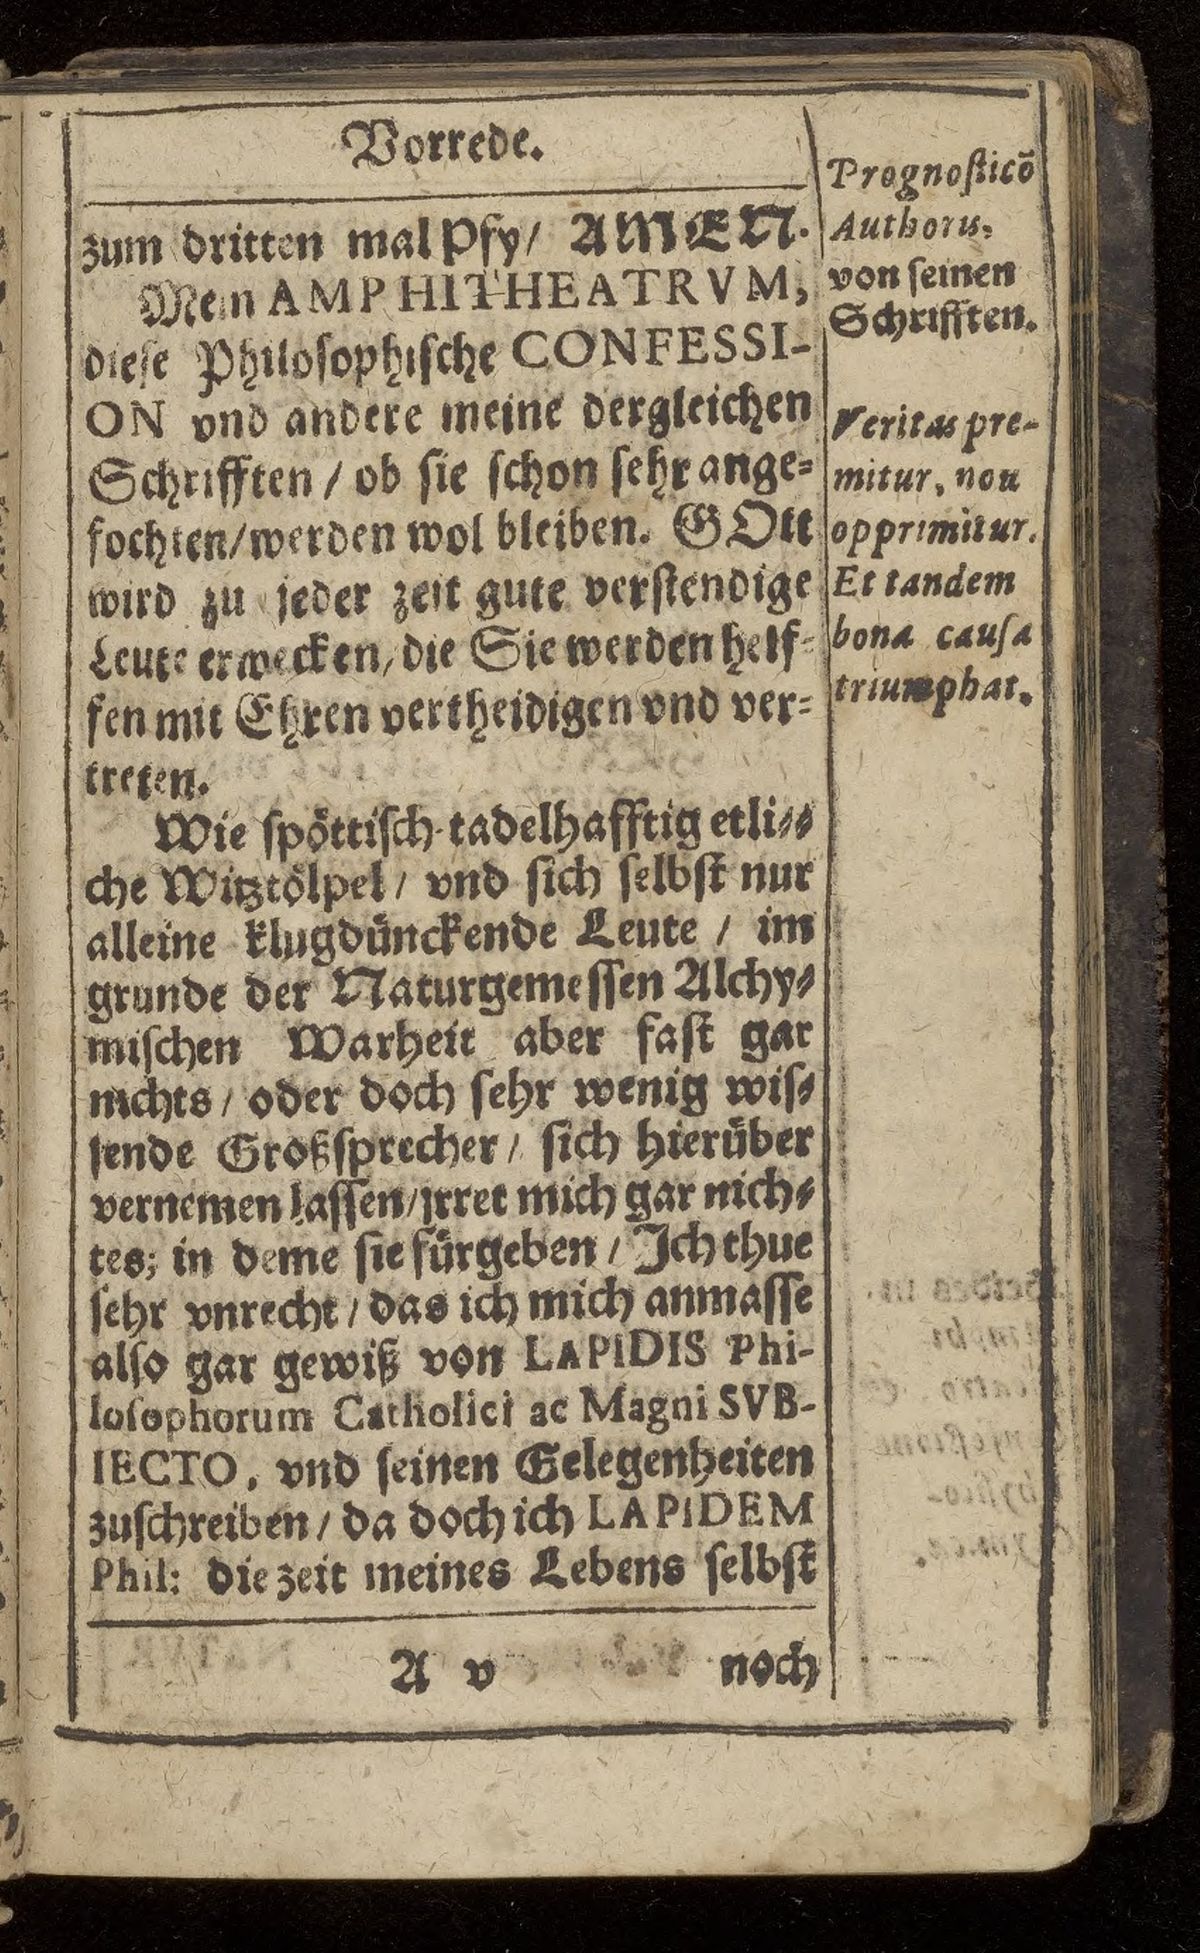 Vorrede.
zum dritten mal Pfy/ AMEN.
Mein AMPHITHEATRVM,
diese Philosophische CONFESSI-
ON vnd andere meine dergleichen
Schrifften / ob sie schon sehr ange=
fochten/werden wol bleiben. GOtt
wird zu jeder zeit gute verstendige
Leute erwecken/die Sie werden helf=
fen mit Ehren vertheidigen vnd ver=
treten.
Wie spöttisch-tadelhafftig etli=
che Witztölpel / vnd sich selbst nur
alleine klugdünckende Leute / im
grunde der Naturgemessen Alchy=
mischen Warheit aber fast gar
nichts / oder doch sehr wenig wis=
sende Großsprecher / sich hierüber
vernemen lassen/jrret mich gar nich=
tes; in deme sie fürgeben / Ich thue
sehr vnrecht / das ich mich anmasse
also gar gewiß von LAPIDIS Phi-
losophorum Catholici ac Magni SVB-
IECTO, vnd seinen Gelegenheiten
zuschreiben / da doch ich LAPIDEM
Phil: die zeit meines Lebens selbst
A v
noch
Prognosticō
Authoris,
von seinen
Schrifften.
Veritas pre-
mitur, non
opprimitur.
Et tandem
bona causa
triumphat.